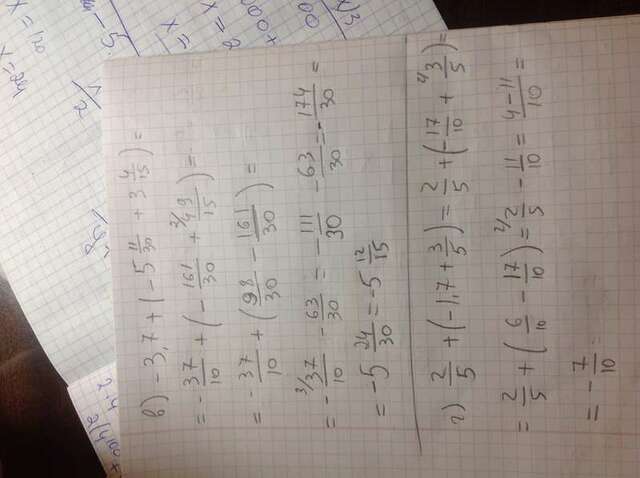 в) -3,7 + (-5 11/30 + 3 4/15) =
= - 37/10 + (- 161/30 + 2/ 49/15) =
= - 37/10 + (98/30 - 161/30) =
= - 3/ 37/10 - 63/30 = - 111/30 - 63/30 = - 174/30 =
= -5 24/30 = -5 12/15
г) 2/5 + (-1,7 + 3/5) = 2/5 + (- 17/10 + 2/ 3/5) =
= 2/5 + (6/10 - 17/10) = 2/ 2/5 - 11/10 = (4-11)/10 =
= - 7/10
x = 24
x = 120
x = 2